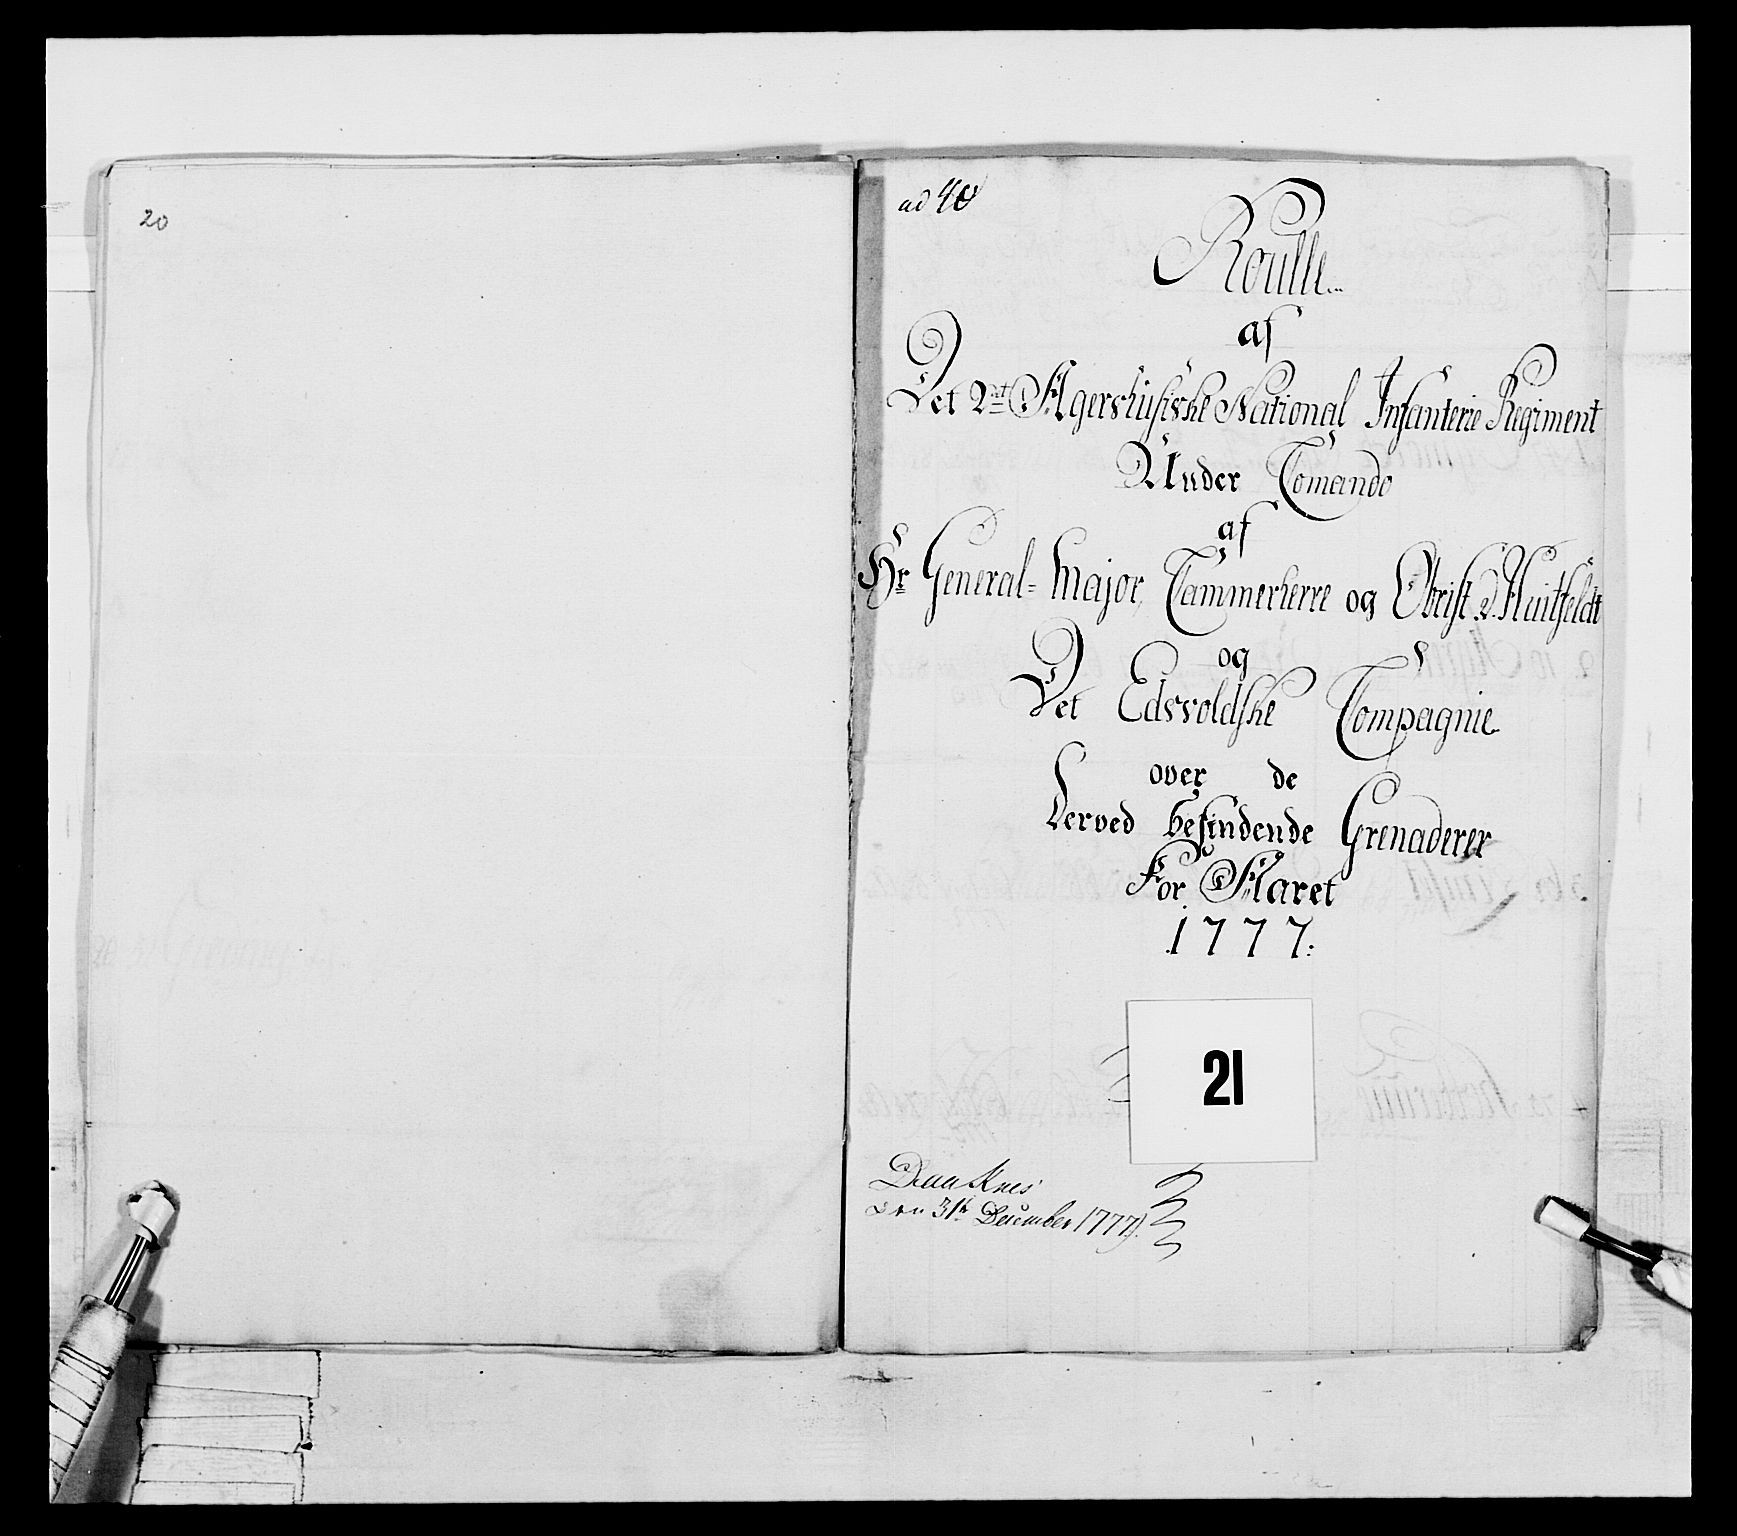 20
ad 40
Roulle
af
Det 2det Agershusiske National Infanterie Regiment
Under Comando
af
Hr General-Major, Cammerherre og Obrist v. Huitfeldt
og
Det Edsvoldske Compagnie
over de
Derved befindende Grenaderer
For Aaret
1777.
21
den 31te December 1777